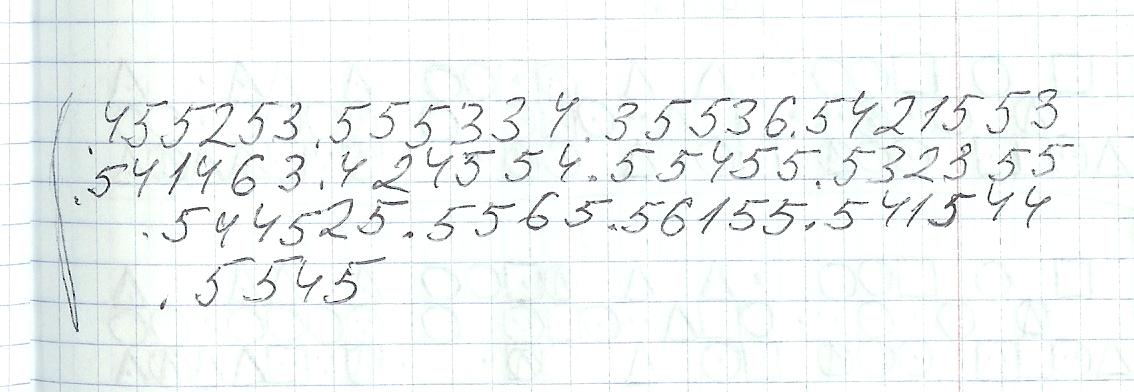 .455253.555334.35536.5421553
.541463.424554.55455.532355
.544525.5565.56155.541544
.5545